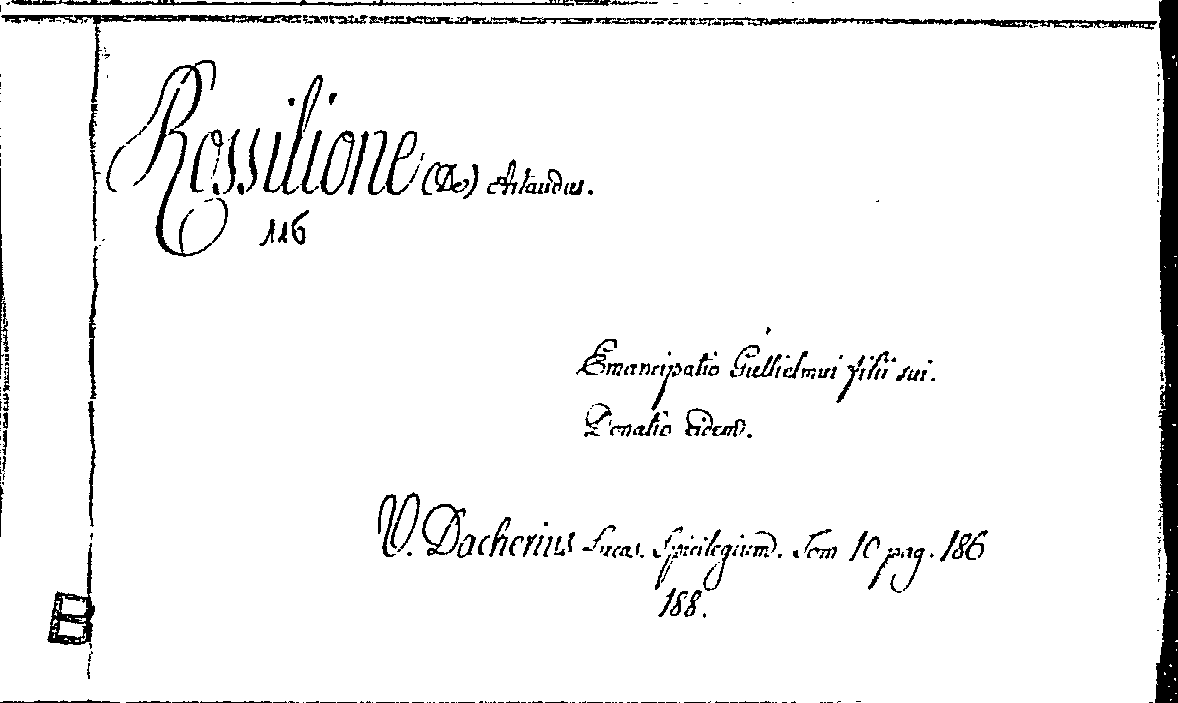 Rossilione (De) Artaudus.
116
Emancipatio Gullielmi filii sui.
Donatio eidem.
V. Dacherius Lucas. Spicilegium. Tom 10 pag. 186
188.